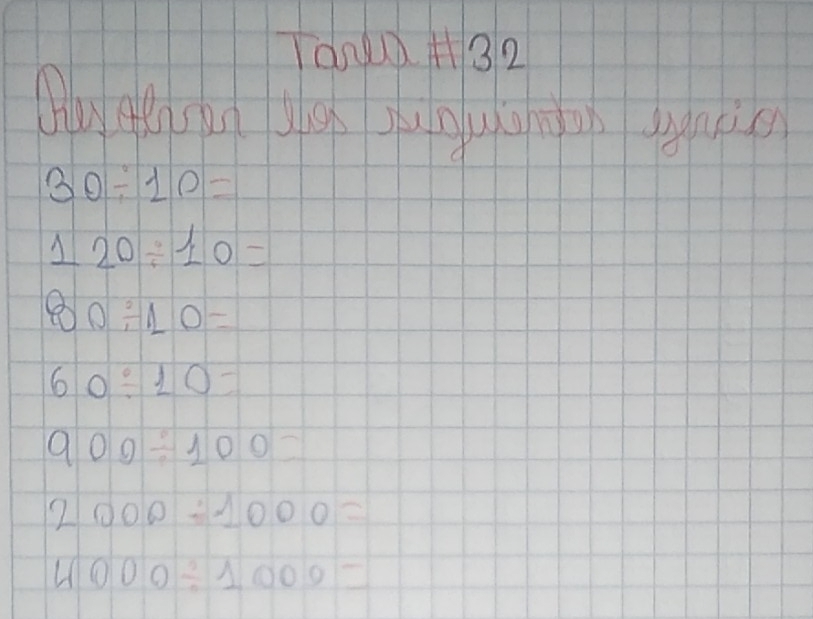 Tarea #32
Resuelvan los siguientes
30÷10=
120÷10=
80÷10=
60÷10=
900÷100=
2000÷1000=
4000÷1000=